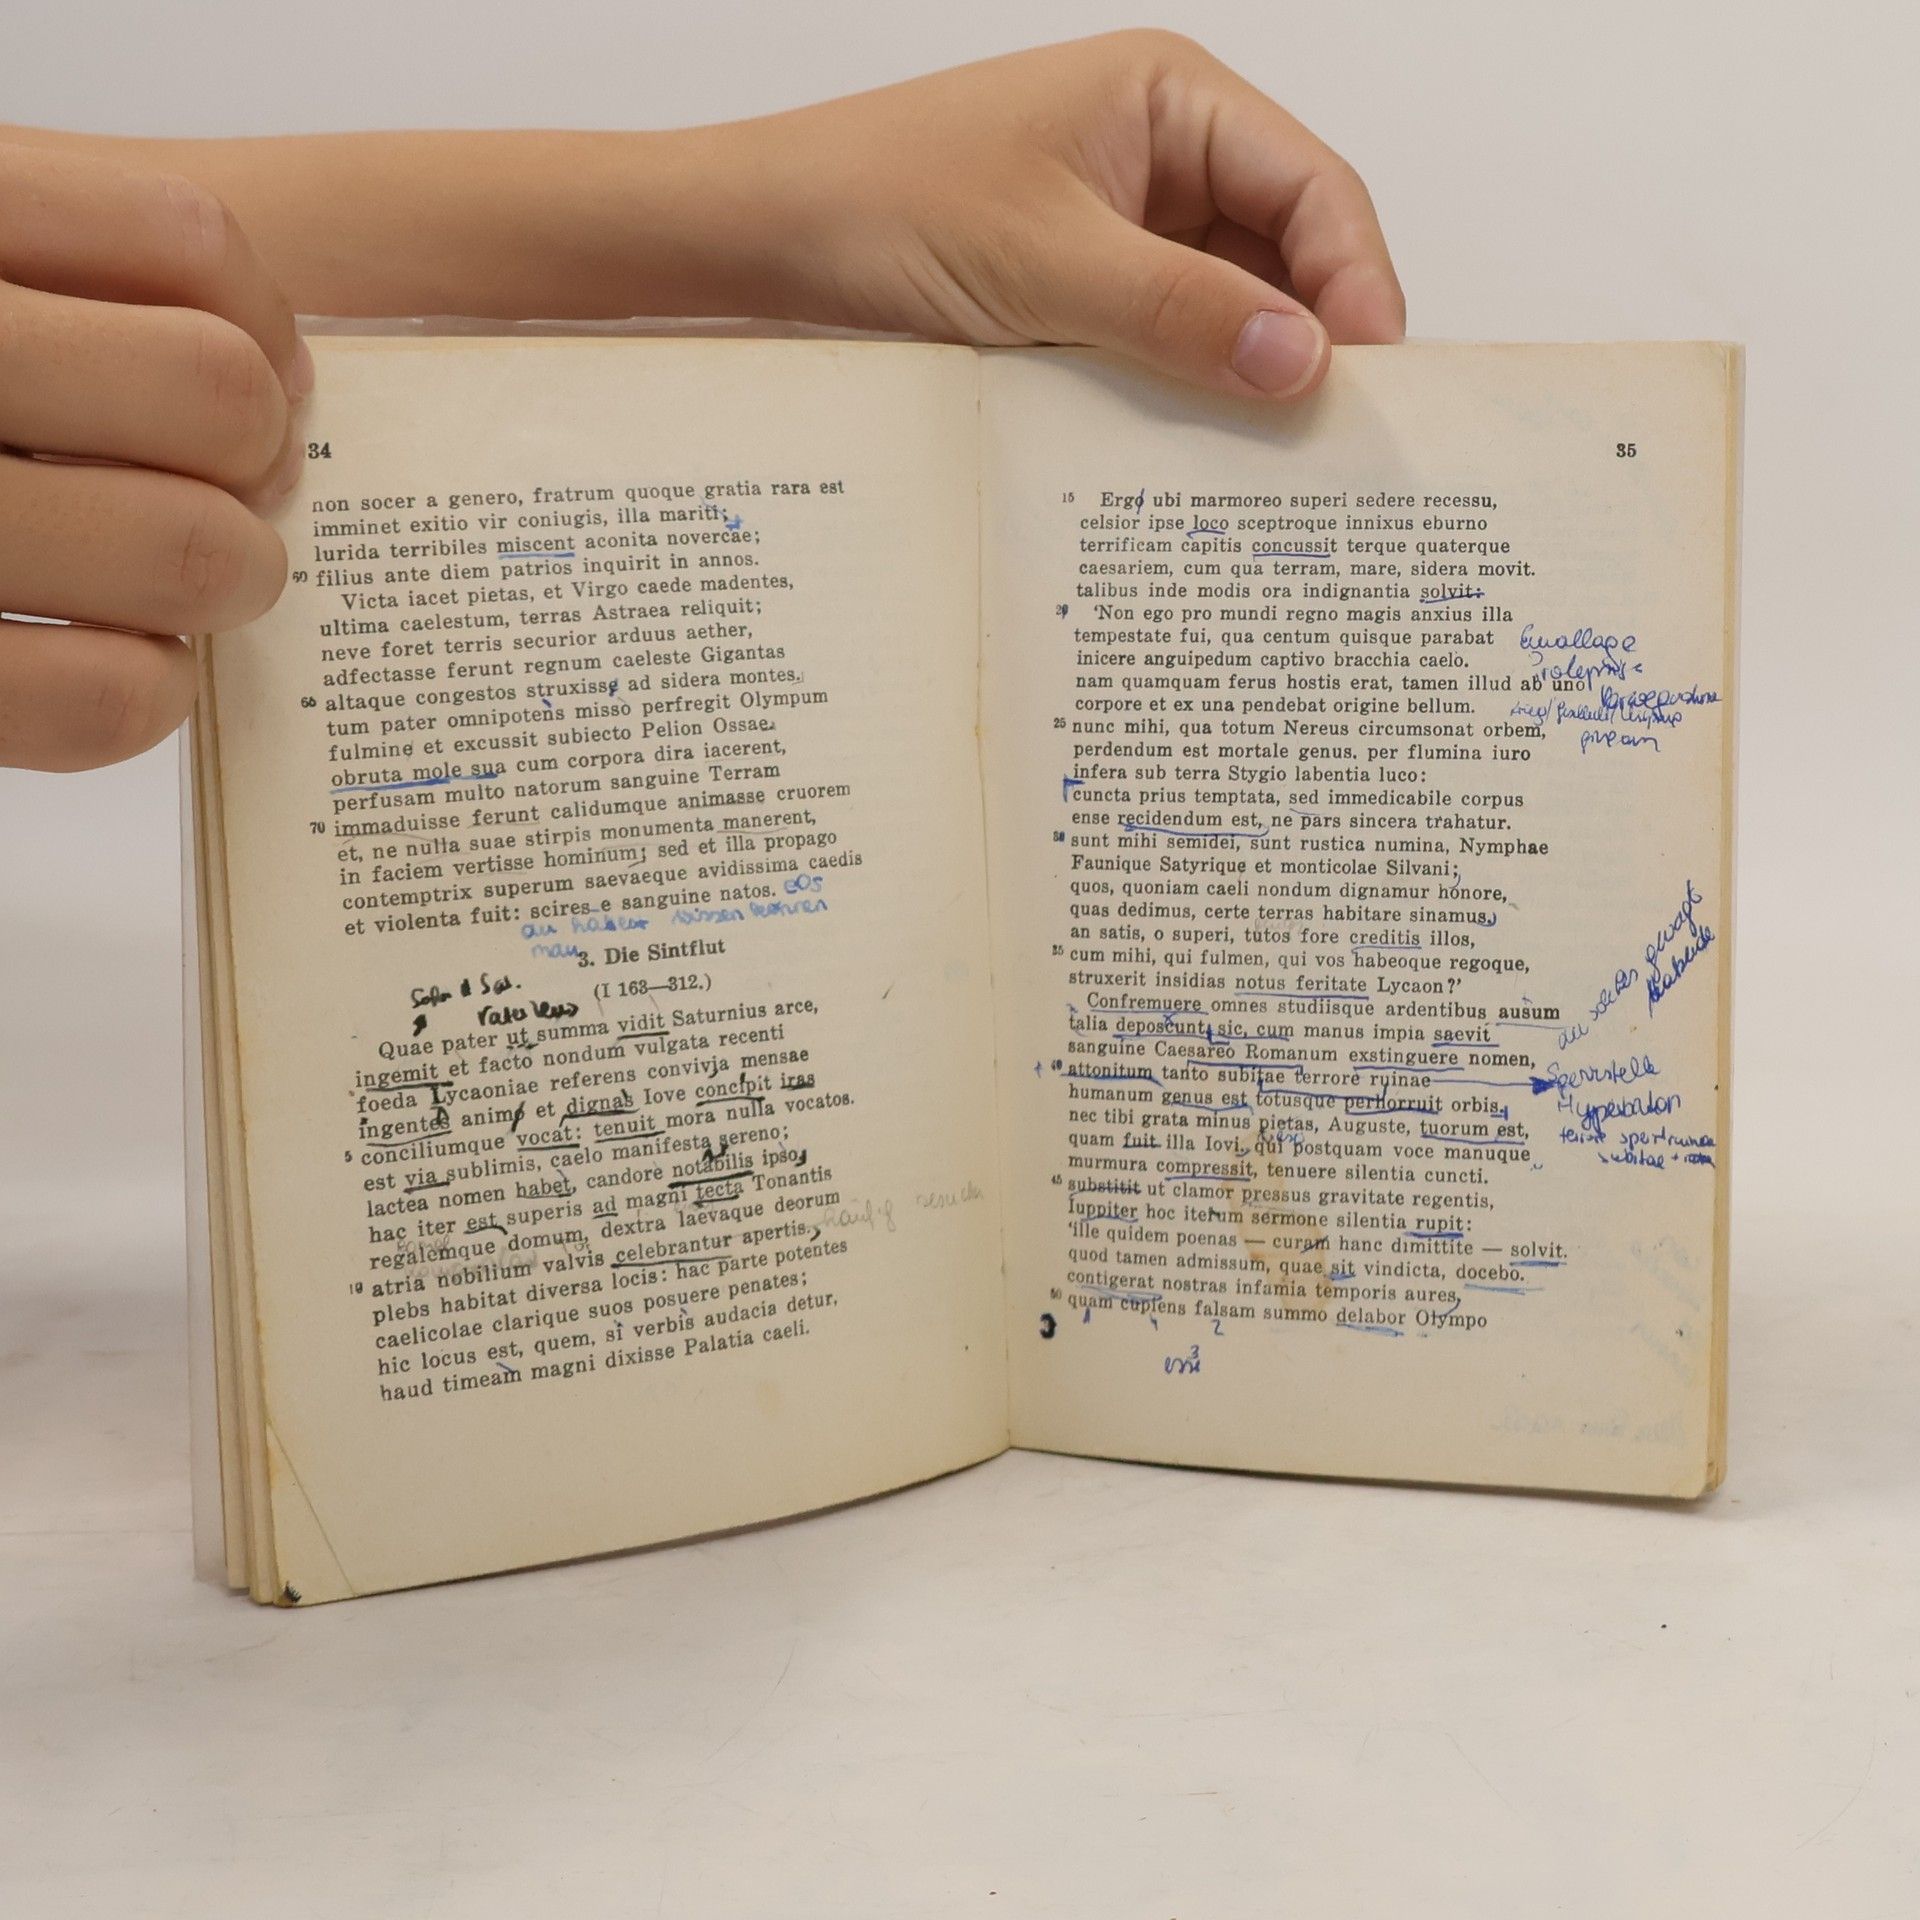 34
non socer a genero, fratrum quoque gratia rara est
imminet exitio vir coniugis, illa mariti;
lurida terribiles miscent aconita novercae;
60 filius ante diem patrios inquirit in annos.
Victa iacet pietas, et Virgo caede madentes,
ultima caelestum, terras Astraea reliquit;
neve foret terris securior arduus aether,
adfectasse ferunt regnum caeleste Gigantas
65 altaque congestos struxisse ad sidera montes.
tum pater omnipotens misso perfregit Olympum
fulmine et excussit subiecto Pelion Ossae.
obruta mole sua cum corpora dira iacerent,
perfusam multo natorum sanguine Terram
70 immaduisse ferunt calidumque animasse cruorem
et, ne nulla suae stirpis monumenta manerent,
in faciem vertisse hominum; sed et illa propago
contemptrix superum saevaeque avidissima caedis
et violenta fuit: scires e sanguine natos. eos
wissen können
man
3. Die Sintflut
(I 163—312.)
Quae pater ut summa vidit Saturnius arce,
ingemit et facto nondum vulgata recenti
foeda Lycaoniae referens convivia mensae
ingentes animo et dignas Iove concipit iras
5 conciliumque vocat: tenuit mora nulla vocatos.
est via sublimis, caelo manifesta sereno;
lactea nomen habet, candore notabilis ipso,
hac iter est superis ad magni tecta Tonantis
regalemque domum, dextra laevaque deorum
10 atria nobilium valvis celebrantur apertis. häufig
plebs habitat diversa locis: hac parte potentes
caelicolae clarique suos posuere penates;
hic locus est, quem, si verbis audacia detur,
haud timeam magni dixisse Palatia caeli.
35
15 Ergo ubi marmoreo superi sedere recessu,
celsior ipse loco sceptroque innixus eburno
terrificam capitis concussit terque quaterque
caesariem, cum qua terram, mare, sidera movit.
talibus inde modis ora indignantia solvit:
20 ‘Non ego pro mundi regno magis anxius illa
tempestate fui, qua centum quisque parabat
inicere anguipedum captivo bracchia caelo.
nam quamquam ferus hostis erat, tamen illud ab uno
corpore et ex una pendebat origine bellum.
25 nunc mihi, qua totum Nereus circumsonat orbem,
perdendum est mortale genus. per flumina iuro
infera sub terra Stygio labentia luco:
cuncta prius temptata, sed immedicabile corpus
ense recidendum est, ne pars sincera trahatur.
30 sunt mihi semidei, sunt rustica numina, Nymphae
Faunique Satyrique et monticolae Silvani;
quos, quoniam caeli nondum dignamur honore,
quas dedimus, certe terras habitare sinamus.
an satis, o superi, tutos fore creditis illos,
35 cum mihi, qui fulmen, qui vos habeoque regoque,
struxerit insidias notus feritate Lycaon?’
Confremuere omnes studiisque ardentibus ausum
talia deposcunt, sic, cum manus impia saevit
sanguine Caesareo Romanum exstinguere nomen,
40 attonitum tanto subitae terrore ruinae
humanum genus est totusque perhorruit orbis.
nec tibi grata minus pietas, Auguste, tuorum est,
quam fuit illa Iovi. qui postquam voce manuque
murmura compressit, tenuere silentia cuncti.
45 substitit ut clamor pressus gravitate regentis,
Iuppiter hoc iterum sermone silentia rupit:
‘ille quidem poenas — curam hanc dimittite — solvit.
quod tamen admissum, quae sit vindicta, docebo.
contigerat nostras infamia temporis aures,
50 quam cupiens falsam summo delabor Olympo
1 4 2
3
Enallage
Sperrstelle
Hyperbaton